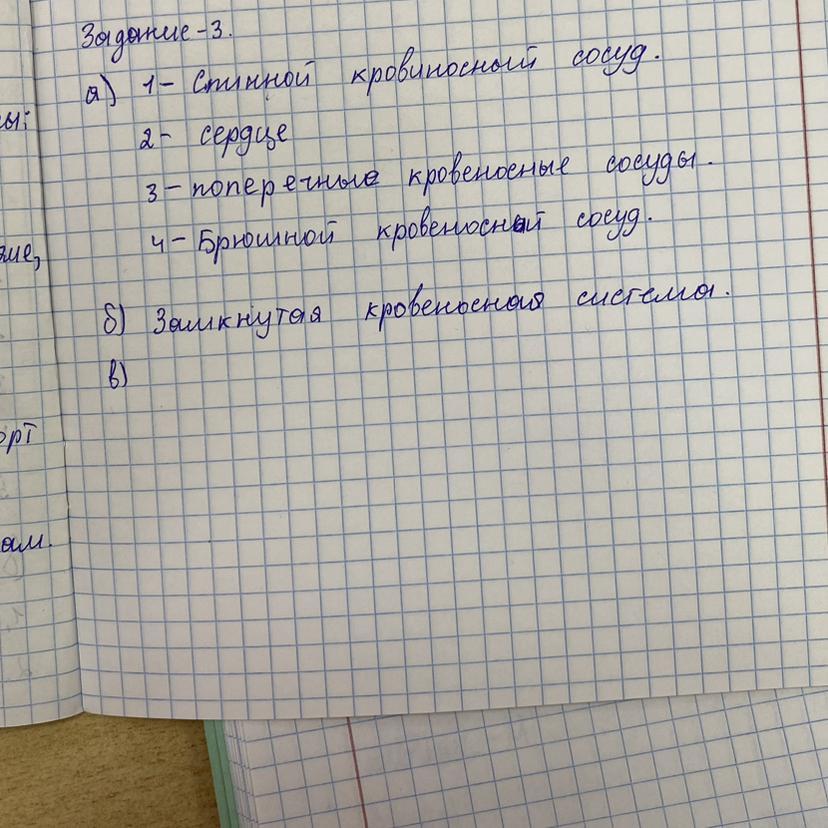 Задание-3.
а) 1- Спинной кровиносный сосуд.
2- сердце
3- поперечные кровеносные сосуды.
4- Брюшной кровеносный сосуд.
б) Замкнутая кровеносная система.
в)
ы:
ие,
орт
ам.